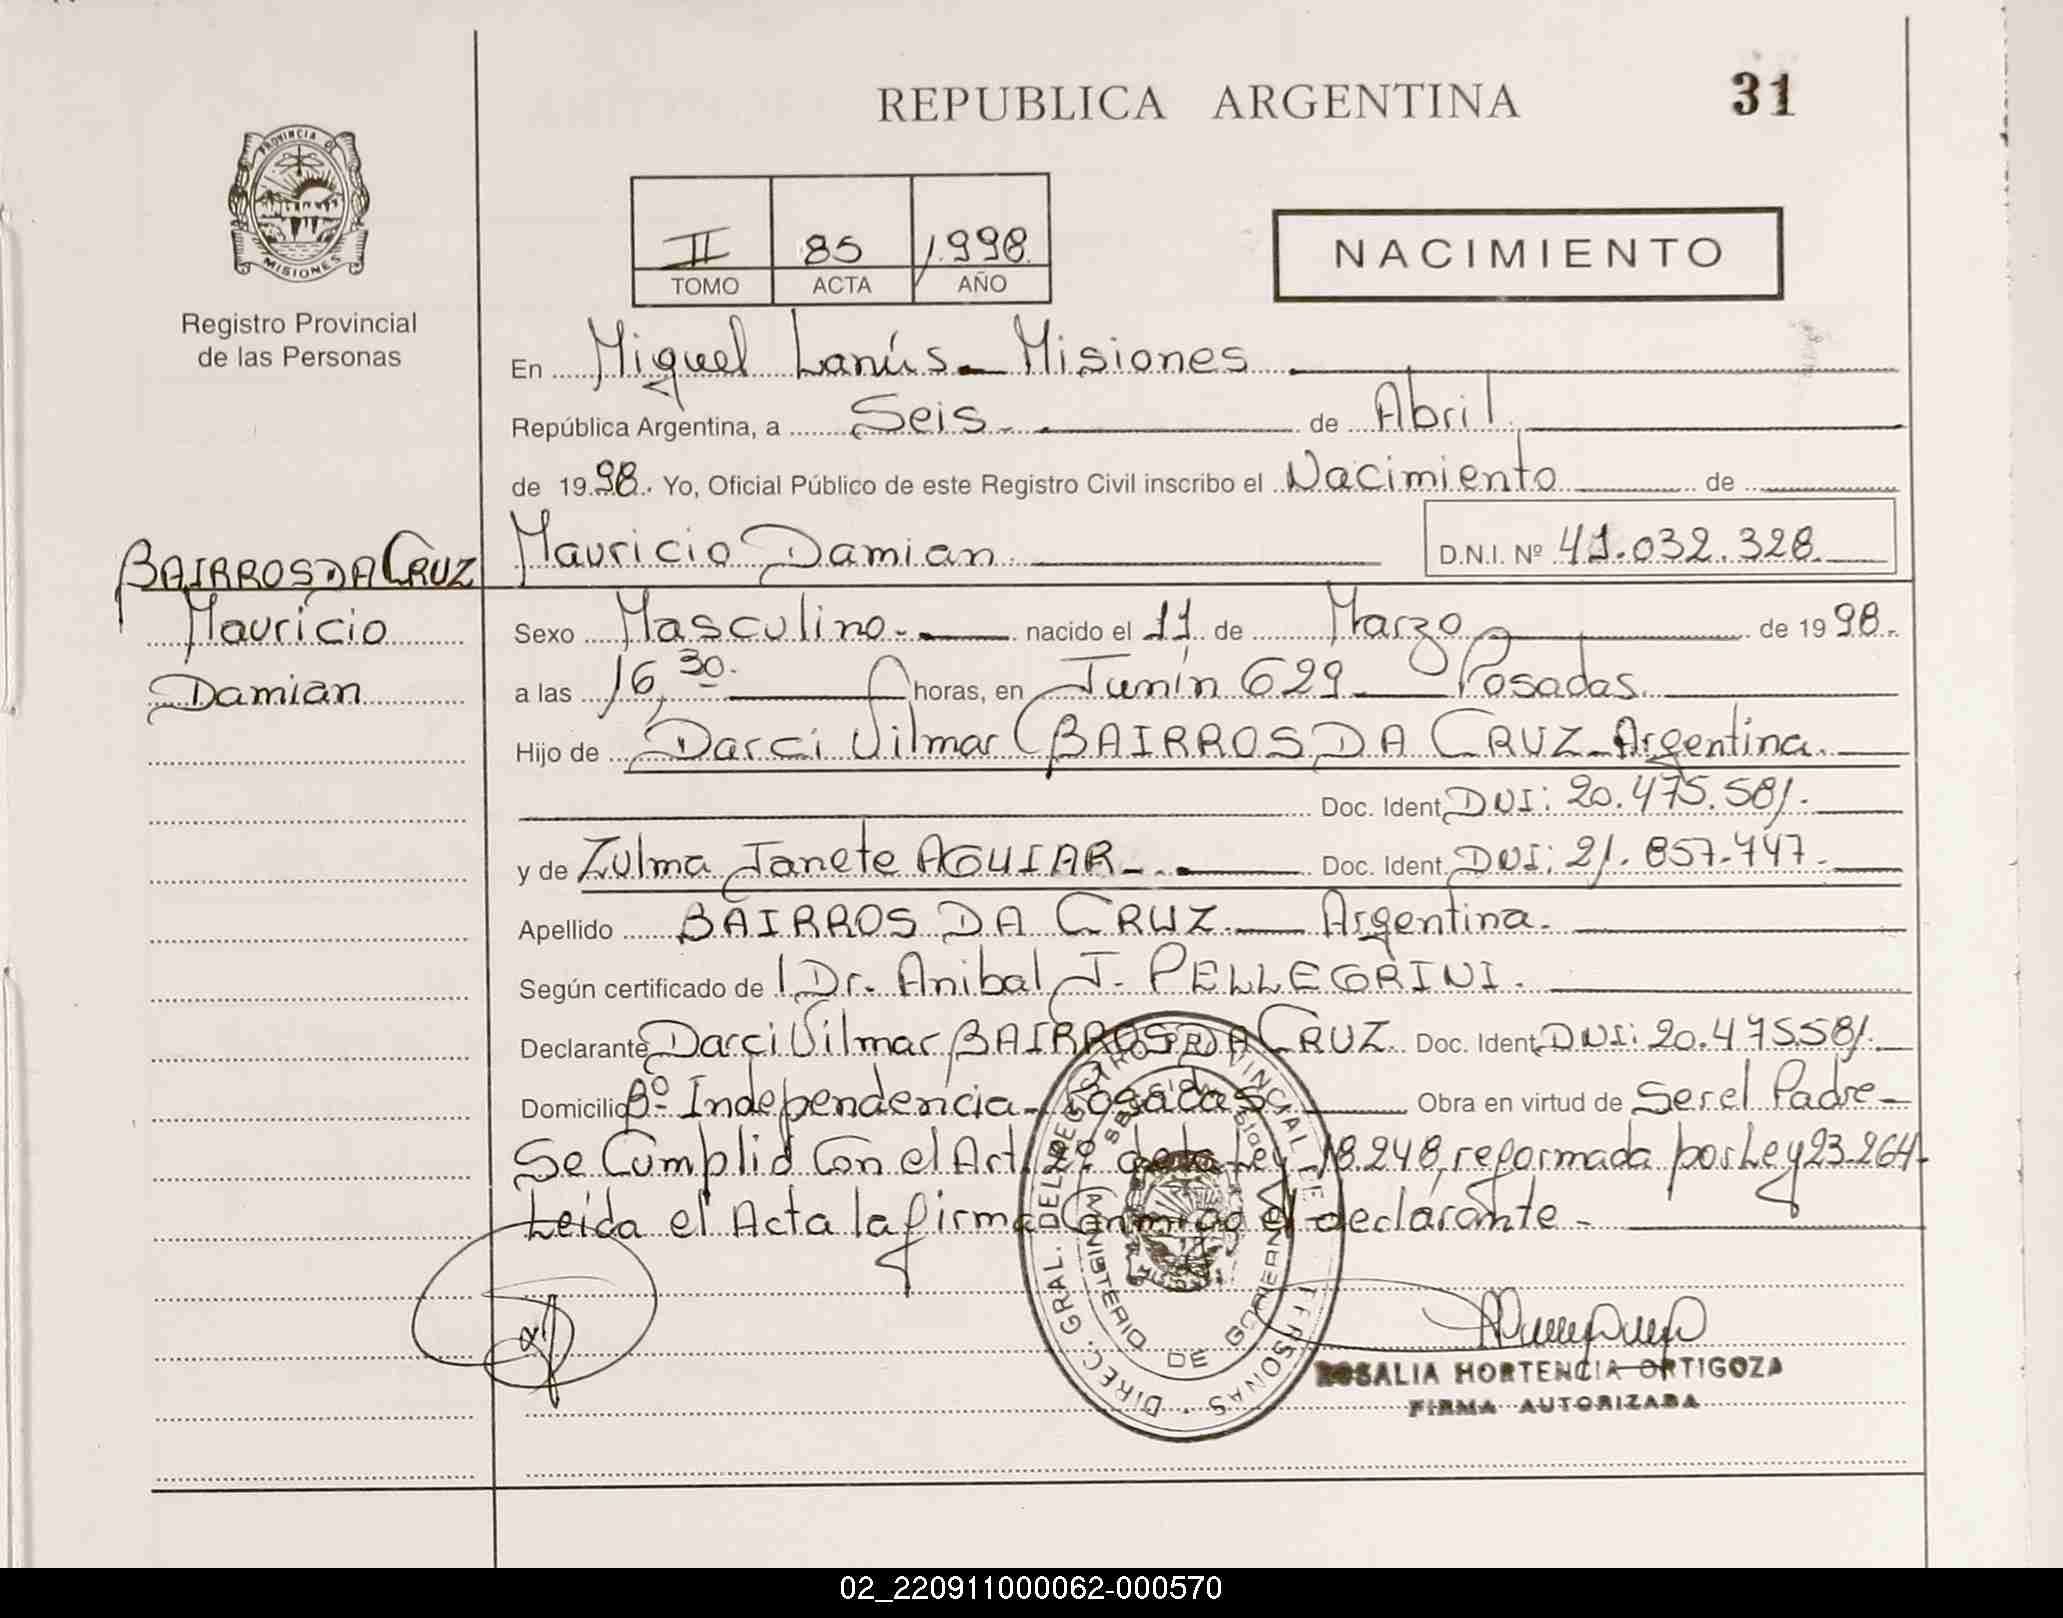 REPUBLICA ARGENTINA
31
PROVINCIA DE
MISIONES
Registro Provincial
de las Personas
II 85 1.998
TOMO ACTA AÑO
NACIMIENTO
En Miguel Lanús - Misiones
República Argentina, a Seis - de Abril
de 1998. Yo, Oficial Público de este Registro Civil inscribo el Nacimiento de
Mauricio Damian. D.N.I. Nº 41.032.328.
BAIRROS DA CRUZ
Mauricio
Damian
Sexo Masculino - nacido el 11 de Marzo de 1998.
a las 16,30. horas, en Junín 629 Posadas.
Hijo de Darci Vilmar BAIRROS DA CRUZ - Argentina.
Doc. Ident. DNI: 20.475.581.
y de Zulma Janete AGUIAR - . Doc. Ident. DNI: 21.857.447.
Apellido BAIRROS DA CRUZ. Argentina.
Según certificado de Dr. Anibal J. PELLEGRINI.
Declarante Darci Vilmar BAIRROS DA CRUZ. Doc. Ident. DNI: 20.475.581.
Domicilio Bº Independencia - Posadas. Obra en virtud de Ser el Padre -
Se Cumplió con el Art. 2º de la Ley 18.248, reformada por Ley 23.264.
Leída el Acta la firma Conmigo el declarante -
DIREC. GRAL. DEL REGISTRO PROVINCIAL DE LAS PERSONAS
MINISTERIO DE GOBIERNO
ROSALIA HORTENCIA ORTIGOZA
FIRMA AUTORIZADA
02_220911000062-000570